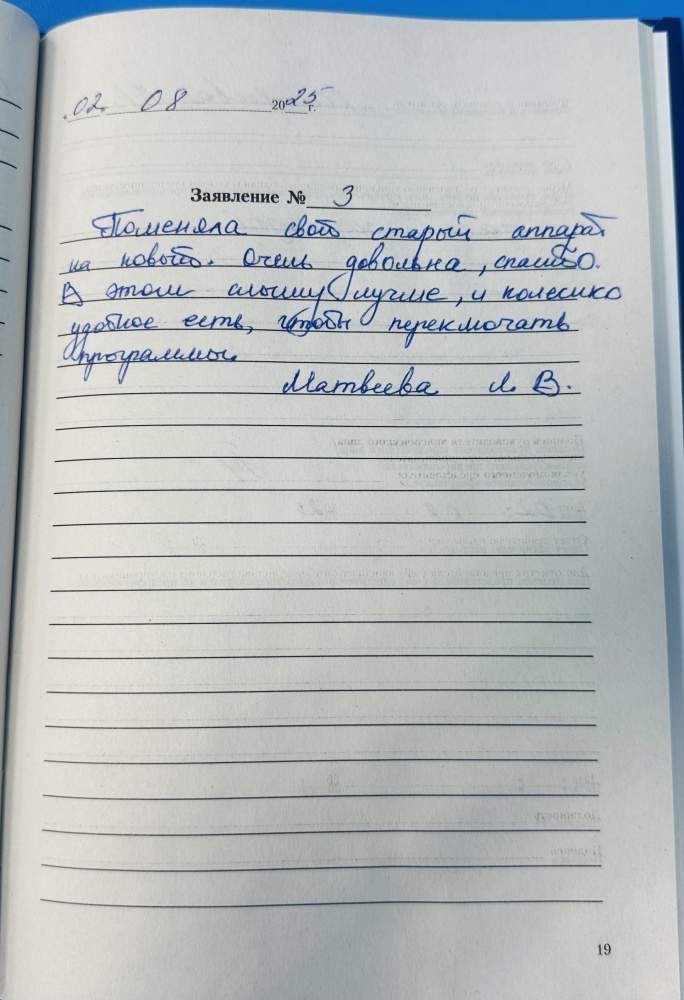 02. 08 2025 г.
Заявление № 3
Поменяла свой старый аппарат
на новый. Очень довольна, спасибо.
В этом слышу лучше, и колесико
удобное есть, чтобы переключать
программы.
Матвеева Л. В.
19